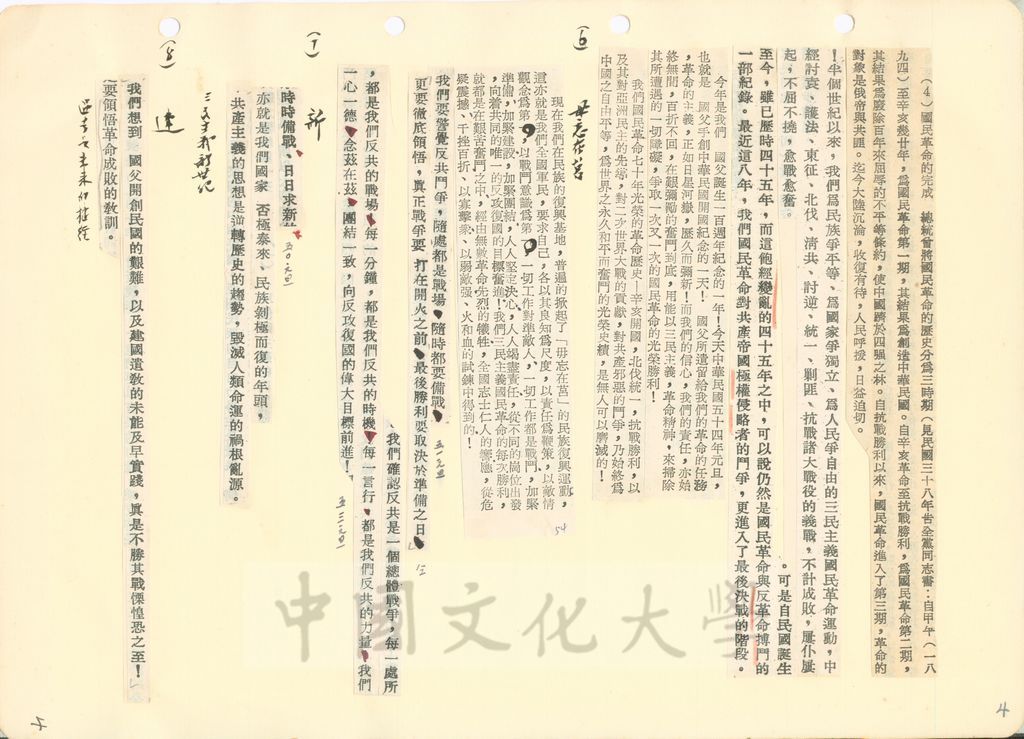 （4）國民革命的完成　總統曾將國民革命的歷史分爲三時期（見民國三十八年告全黨同志書：自甲午（一八
九四）至辛亥幾廿年，爲國民革命第一期，其結果爲創造中華民國。自辛亥革命至抗戰勝利，爲國民革命第二期，
其結果爲廢除百年來屈辱的不平等條約，使中國躋於四强之林。自抗戰勝利以來，國民革命進入了第三期，革命的
對象是俄帝與共匪。迄今大陸沉淪，收復有待，人民呼援，日益迫切。
！半個世紀以來，我們爲民族爭平等、爲國家爭獨立、爲人民爭自由的三民主義國民革命運動，中
經討袁、護法、東征、北伐、淸共、討逆、統一、剿匪、抗戰諸大戰役的義戰，不計成敗，屢仆屢
起，不屈不撓，愈戰愈奮。
。可是自民國誕生
至今，雖已歷時四十五年，而這飽經變亂的四十五年之中，可以說仍然是國民革命與反革命搏鬥的
一部紀錄。最近這八年，我們國民革命對共產帝國極權侵略者的鬥爭，更進入了最後決戰的階段。
今年是我們　國父誕生一百週年紀念的一年！今天中華民國五十四年元旦，
也就是　國父手創中華民國開國紀念的一天！　國父所遺留給我們的革命的任務
，革命的主義，正如日星河嶽，歷久而彌新！而我們的信心，我們的責任，亦始
終無間，百折不回，在艱彌勵的奮鬥到底，用能以三民主義，革命精神，來掃除
其所遭遇的一切障礙，爭取一次又一次的國民革命的光榮勝利！
我們國民革命七十年光榮的革命歷史—辛亥開國，北伐統一，抗戰勝利，以
及其對亞洲民主的先導，對二次世界大戰的貢獻，對共產邪惡的鬥爭，乃始終爲
中國之自由平等，爲世界之永久和平而奮鬥的光榮史績，是無人可以磨滅的！
(6)
毋忘在莒
現在我們在民族的復興基地，普遍的掀起了「毋忘在莒」的民族復興運動，
這亦就是我們全國軍民，要求自己，各以其良知爲尺度，以責任爲鞭策，以敵情
觀念爲第一，以戰鬥意識爲第一，一切工作對準敵人、一切工作都是戰鬥，加緊
準備，加緊建設，加緊團結，人人堅定決心，人人竭盡責任，從不同的崗位出發
，向着共同的唯一的反攻復國的目標奮進！我們三民主義國民革命的每次勝利，
就都是在艱苦奮鬥之中，經由無數革命先烈的犧牲，全國志士仁人的響應，從危
疑震撼、千挫百折、以寡擊衆、以弱敵强、火和血的試鍊中得到的！
54
我們要警覺反共鬥爭，隨處都是戰場、隨時都要備戰、
更要徹底領悟，眞正戰爭要　打在開火之前、最後勝利要取決於準備之日、
(7)
新
、我們確認反共是一個總體戰爭，每一處所
，都是我們反共的戰場、每一分鐘，都是我們反共的時機、每一言行、都是我們反共的力量、我們
一心一德、念茲在茲、團結一致，向反攻復國的偉大目標前進！
時時備戰、日日求新
亦就是我們國家　否極泰來、民族剝極而復的年頭，
共產主義的思想是逆轉歷史的趨勢，毀滅人類命運的禍根亂源。
(8)
建
我們想到　國父開創民國的艱難，以及建國遺敎的未能及早實踐，眞是不勝其戰慄惶恐之至！
要領悟革命成敗的敎訓。
4
5